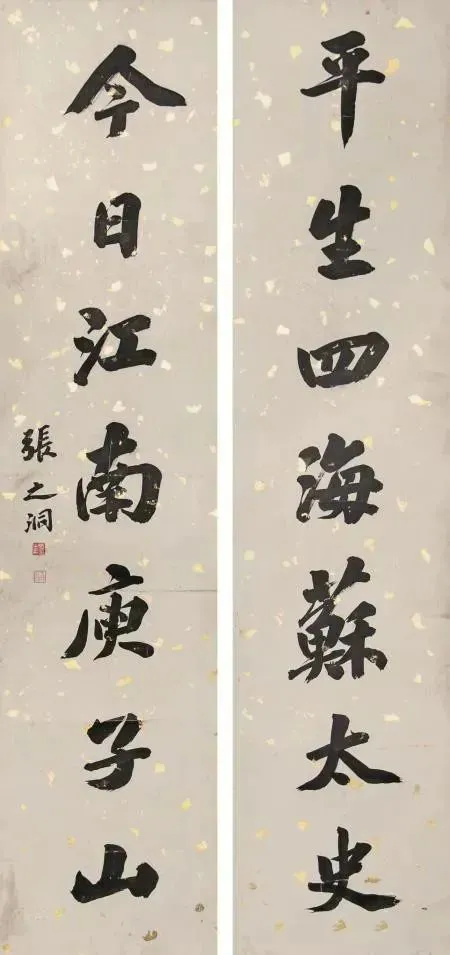 平生四海蘇太史
今日江南庚子山
張之洞